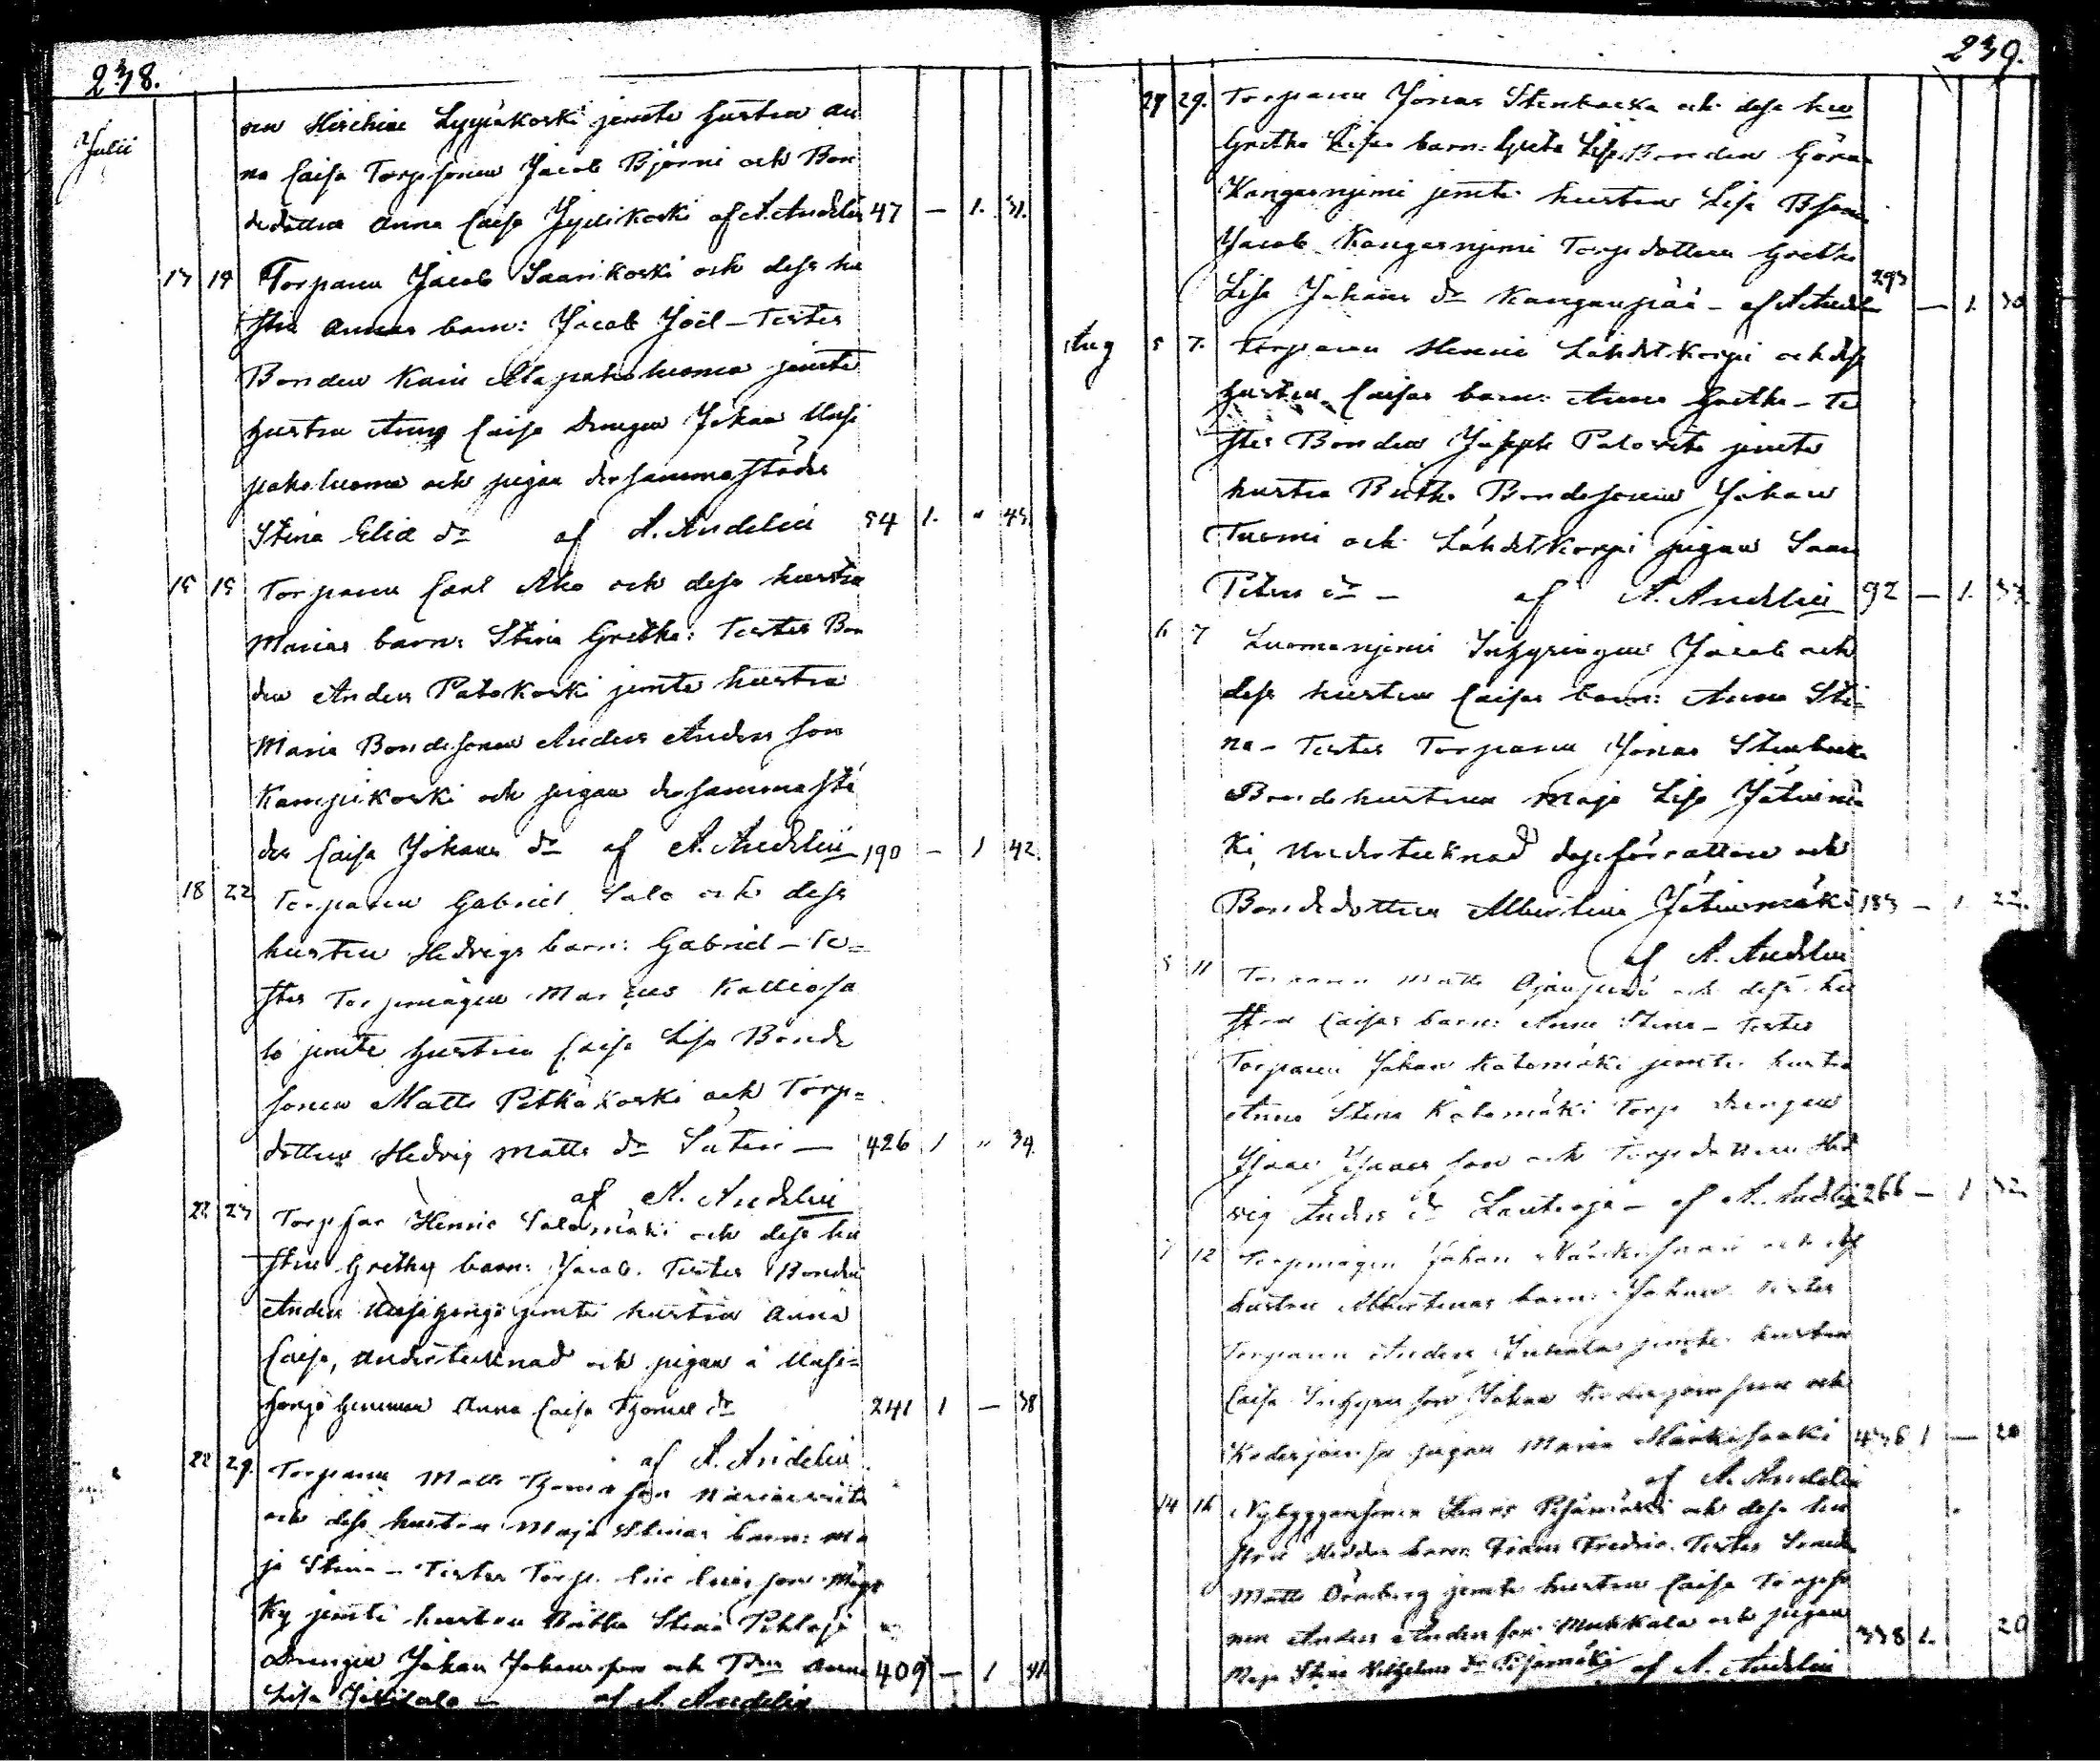 238.
Julii
sen Hirchine Lyyjäkoski jemte hustru An
na Caisa Torpsonen Jacob Björni och Bon
dedottren Anna Caisa Jylikoski af A. Andelin 47 — 1. 31.
13 14 Torparen Jacob Saarikoski och dess hu
stru Annas barn: Jacob Joël — Testes
Bonden Alapaholuoma jemte
hustru Anna Caisa Drengen Johan Uusi
paholuoma och pigan dersammastädes
Stina Elia dr af A. Andelin 54 1. " 45
15 15 Torparen Carl Aho och dess hustru
Marias barn: Stina Gretha: Testes Bon
den Anders Patokoski jemte hustru
Maria Bondesonen Anders Andersson
Kamppikoski och pigan dersammastä
des Caisa Johans dr af A. Andelin 190 — 1 42.
18 22 Torparen Gabriel Salo och dess
hustru Hedvigs barn: Gabriel — Te=
stes Torpmågen Kalliosa
lo jemte hustru Caisa Lisa Bonde
sonen Matts Pitkäkoski och Torp=
dottren Hedvig Matts dr — 426 1 " 34.
af A. Andelin
22 23 Torpar Henric Salomäki och dess hu
stru Grethas barn: Jacob. Testes Bonden
Anders jemte hustru Anna
Caisa, undertecknad och pigan å Uusi=
Anna Caisa Thomas dr 241 1 — 38
af A. Andelin
22 29. Torparen Matts Thomasson
och dess hustru Maja Stinas barn: Ma
ja Stina — Testes Torp. Eric Ericsson
jemte hustru Stina
Drengen Johan Johansson och Anna 409 — 1 41
Lisa — af A. Andelin
239.
29 29. Torparen Jonas Stenbacka och dess hu
Gretha Lisas barn: Greta Lisa Bonden Göran
Kangasnjemi jemte hustru Lisa Bson
Jacob Kangasnjemi Torpdottren Gretha
Lisa Johans dr Kangaspää — af A. Andelin 293 — 1. 30
Aug 5 7. Torparen Henric Lähdetkorpi och dess
hustru Caisas barn: Anna Gretha — Te
stes Bonden Joseph Palovita jemte
hustru Britha Bondesonen Johan
Turmi och Lähdetkorpi pigan
Peters dr — af A. Andelin 92 — 1. 33
6 7 Luomanjemi Inhysingen Jacob och
dess hustru Caisas barn: Anna Sti=
na — Testes Torparen Jonas Stenbacka
Bondehustrun Maja Lisa Jätinmä
ki, undertecknad dopförrättare och
Bondedottren Albertina Jätinmäki 183 — 1 22.
af A. Andelin
5 11 Torparen Matts och dess hu
stru Caisas barn: Anna Stina — Testes
Torparen Johan Katomäki jemte hustru
Anna Stina Katomäki Torp Drengen
Isaac Isaacs son och Torpdottren Hed
vig Anders dr Lautaoja — af A. Andelin 266 — 1 32
7 12 Torpmågen Johan och dess
hustru Albertinas barn: Johan Testes
Torparen Anders jemte hustru
Caisa Johan och
pigan Maria 436 1 — 20
af A. Andelin
14 16 Nybyggaresonen och dess hu
stru barn: Frans Fredric. Testes
Matts jemte hustru Caisa Torpso
nen Anders Andersson Mukkala och pigan 338 1. 20
Maja Stina Wilhelms dr af A. Andelin